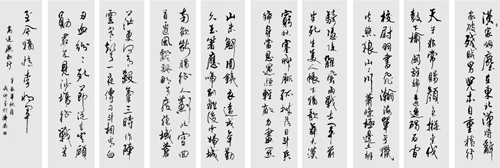 漢家煙塵在東北漢將辭
家破殘賊男兒本自重橫行
天子非常賜顏色摐金伐
鼓下榆關旌旆逶迤碣石間
校尉羽書飛瀚海單于獵
火照狼山山川蕭條極邊土胡
騎憑陵雜風雨戰士軍前
半死生美人帳下猶歌舞大漠
窮秋塞草腓孤城落日鬥兵
稀身當恩遇恒輕敵力盡關
山未解圍鐵衣遠戍辛勤
久玉箸應啼別離後少婦城
南欲斷腸征人薊北空回
首邊風飄飄那可度絕域蒼
茫更何有殺氣三時作陣
雲寒聲一夜傳刁斗相看白
刃血紛紛死節從來豈顧
勳君不見沙場征戰苦
至今猶憶李將軍
高適燕歌行